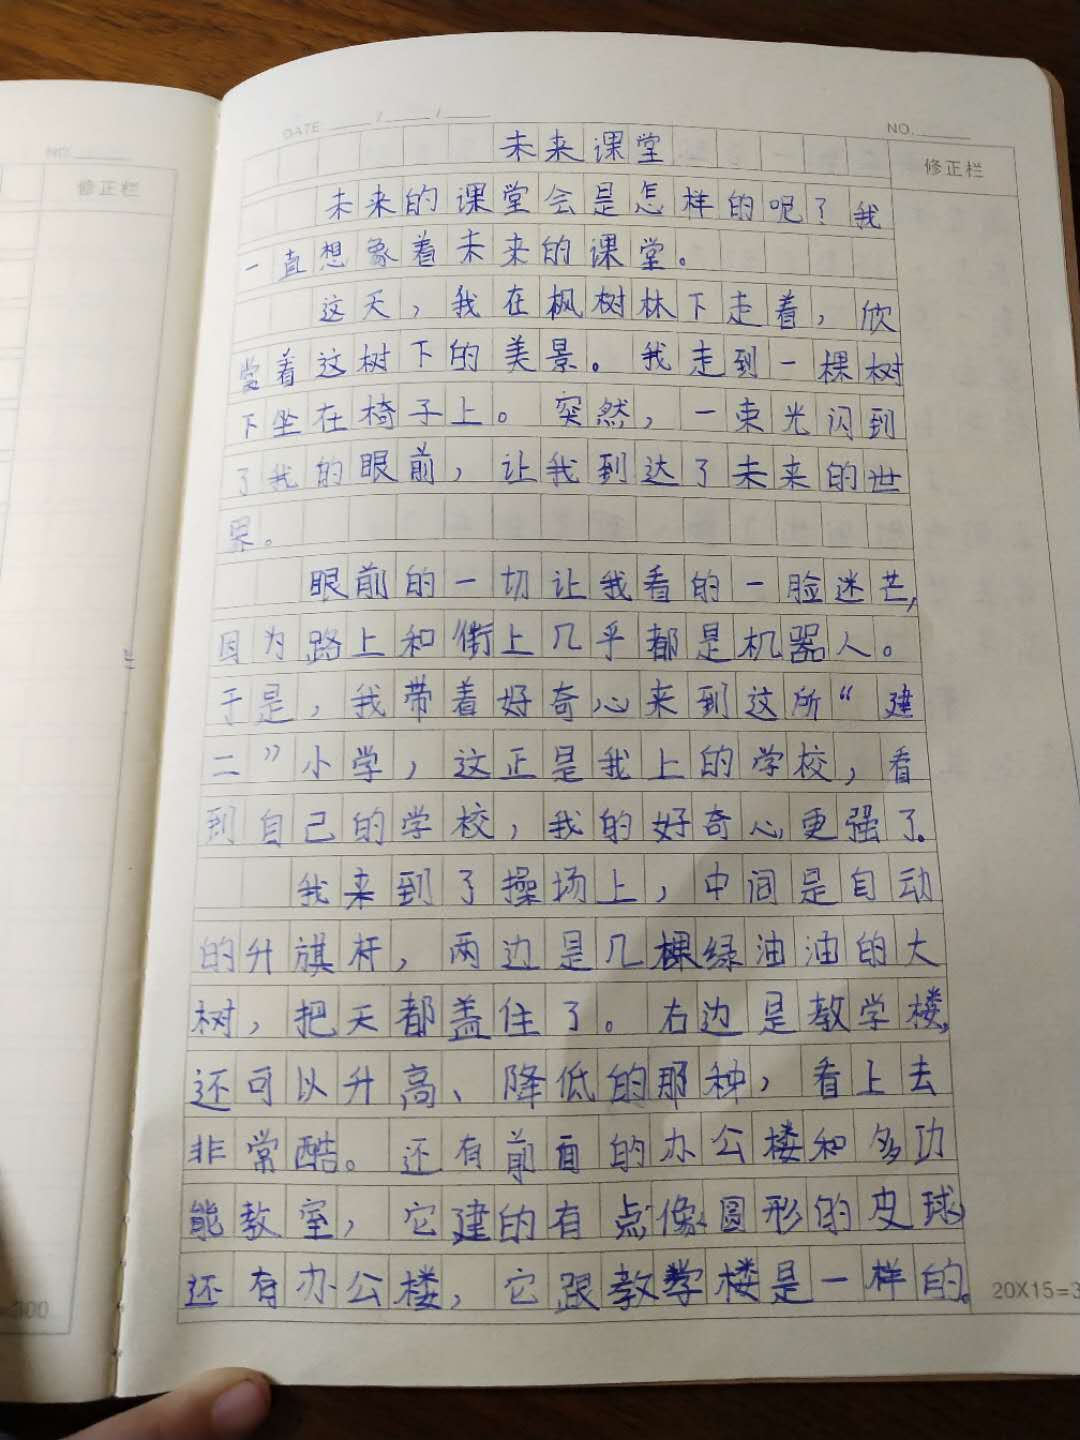 DATE ____ / ____ / ____
NO. ____
NO. ____
修正栏
修正栏
未来课堂
未来的课堂会是怎样的呢？我
一直想象着未来的课堂。
这天，我在枫树林下走着，欣
赏着这树下的美景。我走到一棵树
下坐在椅子上。突然，一束光闪到
了我的眼前，让我到达了未来的世
界。
眼前的一切让我看的一脸迷芒，
因为路上和街上几乎都是机器人。
于是，我带着好奇心来到这所“建
二”小学，这正是我上的学校，看
到自己的学校，我的好奇心更强了。
我来到了操场上，中间是自动
的升旗杆，两边是几棵绿油油的大
树，把天都盖住了。右边是教学楼，
还可以升高、降低的那种，看上去
非常酷。还有前面的办公楼和多功
能教室，它建的有点像圆形的皮球，
还有办公楼，它跟教学楼是一样的。
=300
20X15=3